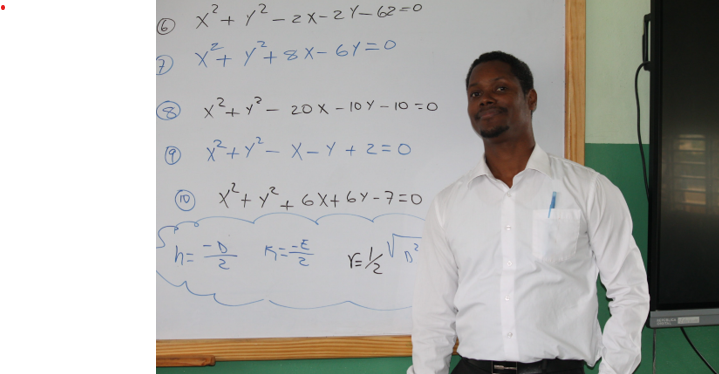 ⑥ x²+ y²-2x-2y-62=0
⑦ x²+ y²+8x-6y=0
⑧ x²+y²-20x-10y-10=0
⑨ x²+y²-x-y+2=0
⑩ x²+y²+6x+6y-7=0
h=-D/2 K=-E/2 r=1/2√D²